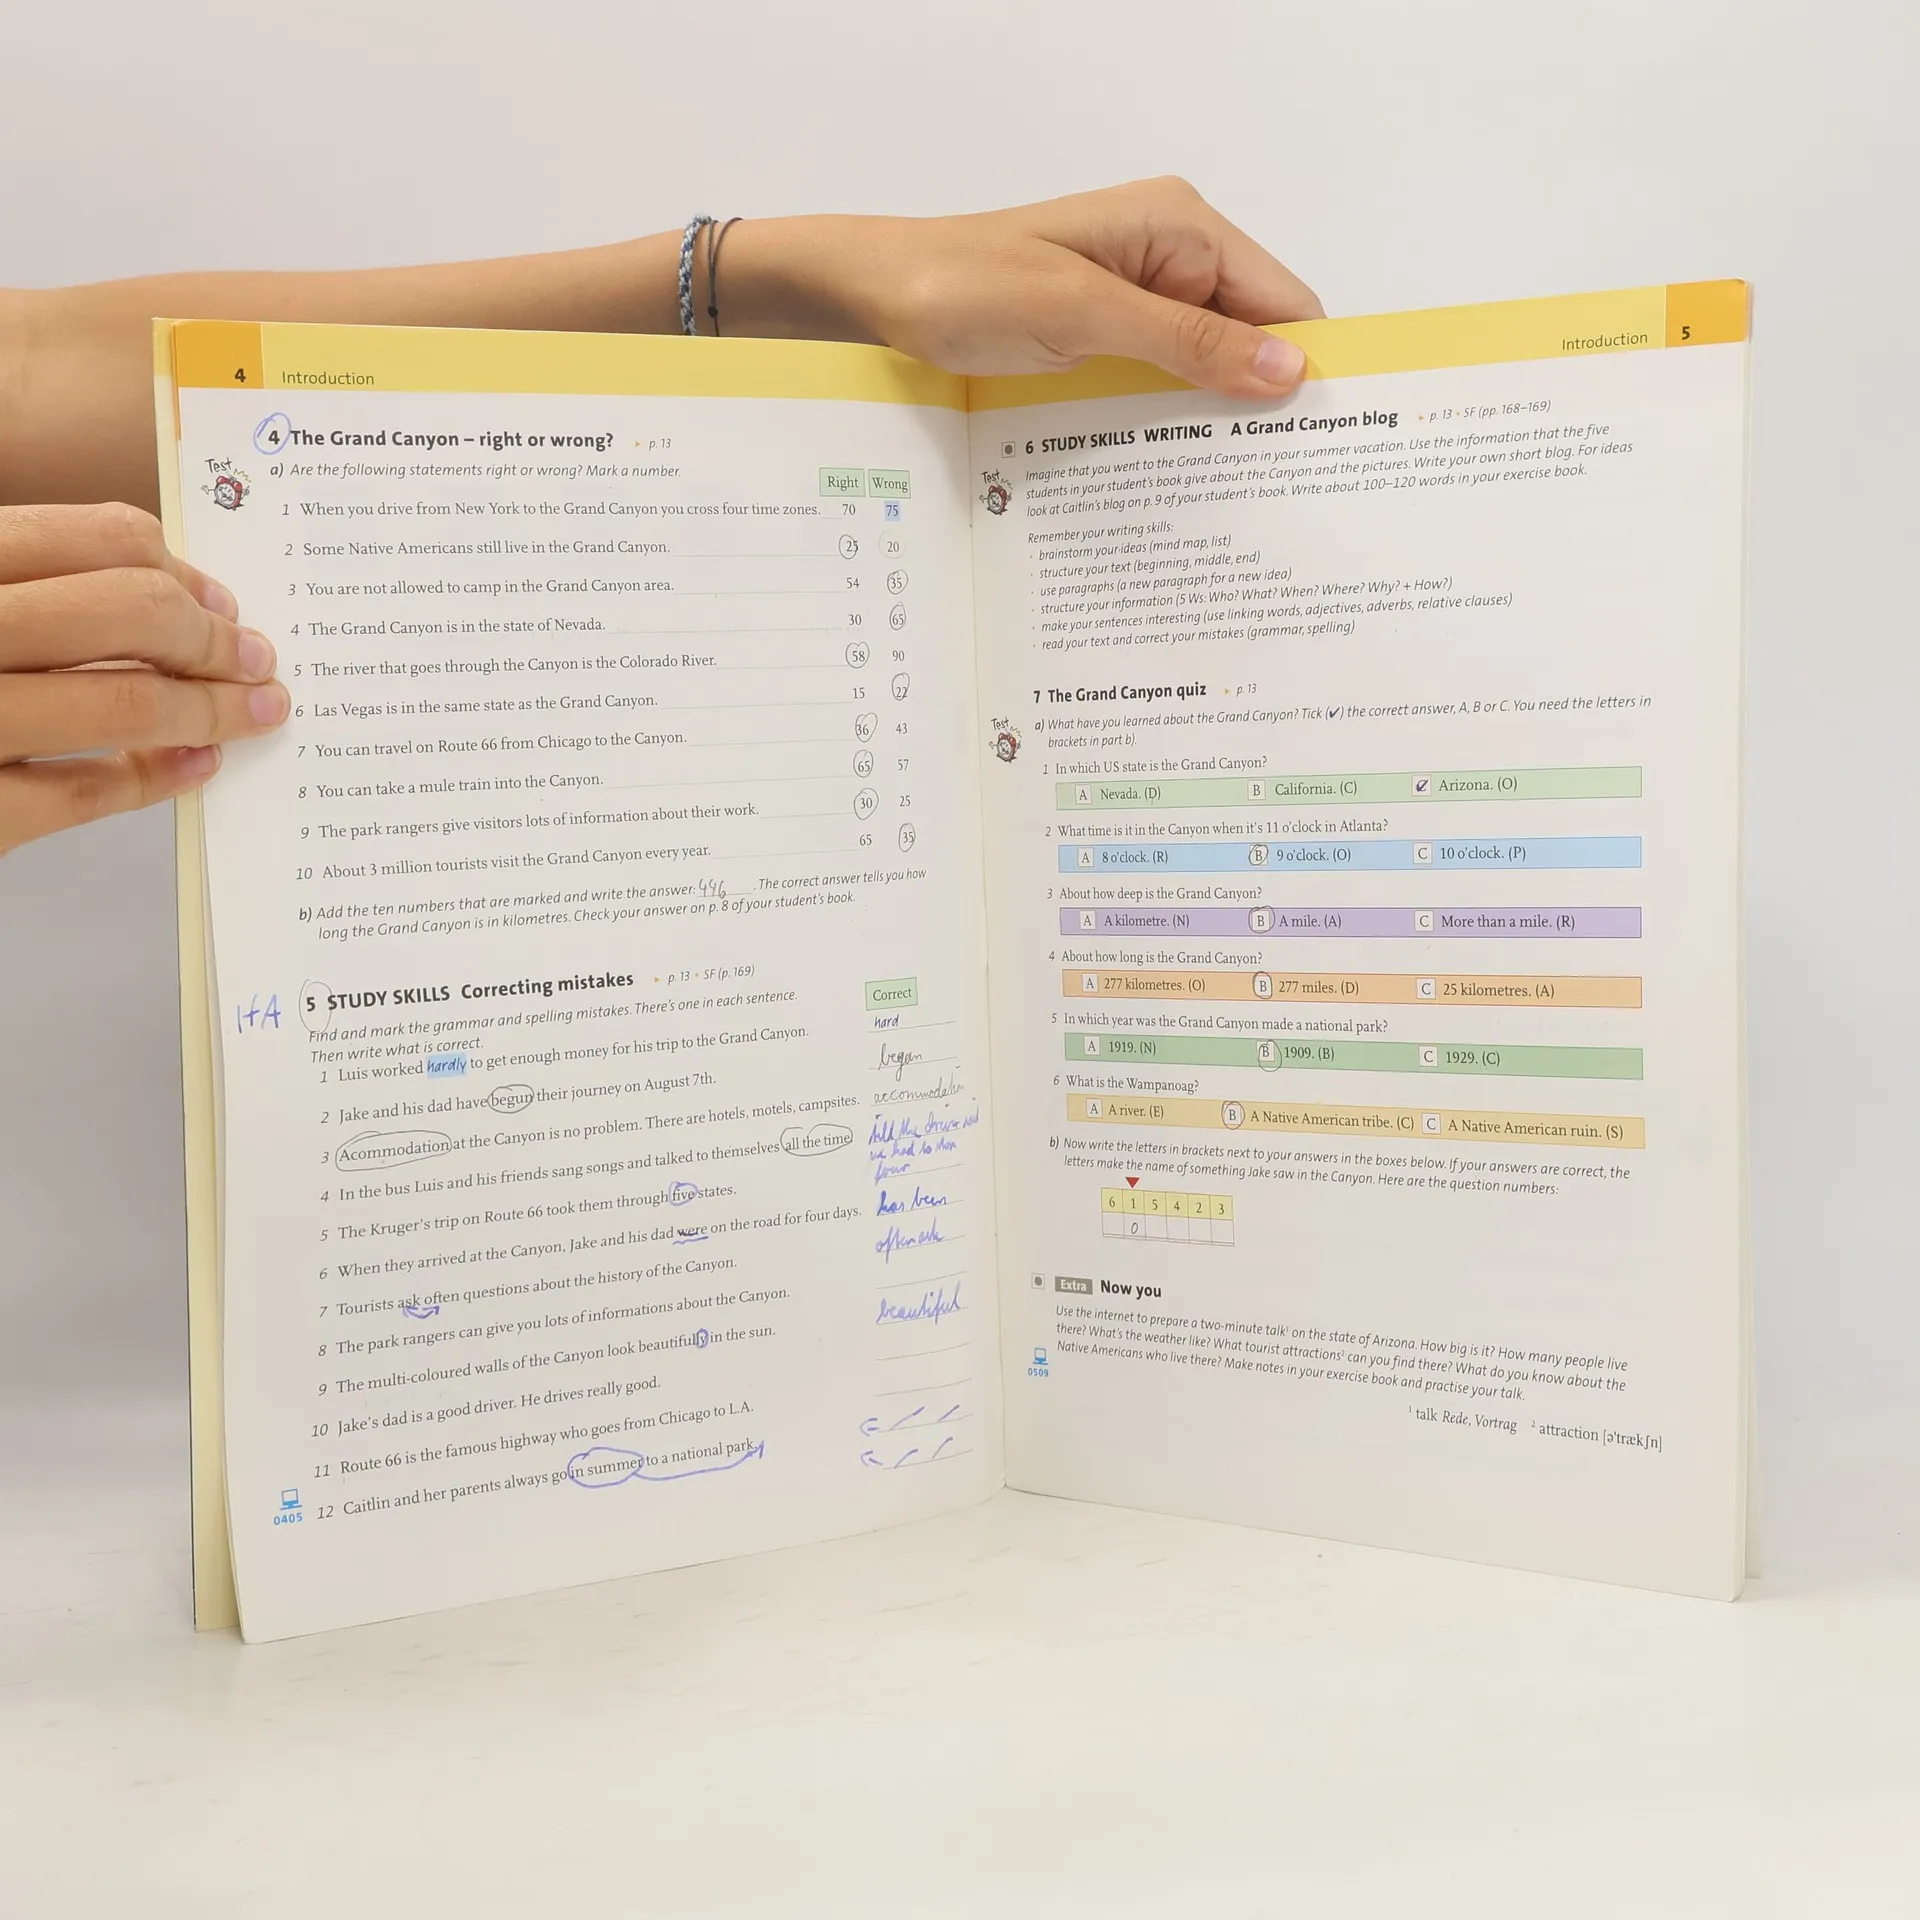 4 Introduction
4 The Grand Canyon – right or wrong? ▸ p. 13
Test
a) Are the following statements right or wrong? Mark a number.
Right Wrong
1 When you drive from New York to the Grand Canyon you cross four time zones. 70 75
2 Some Native Americans still live in the Grand Canyon. 25 20
3 You are not allowed to camp in the Grand Canyon area. 54 35
4 The Grand Canyon is in the state of Nevada. 30 65
5 The river that goes through the Canyon is the Colorado River. 58 90
6 Las Vegas is in the same state as the Grand Canyon. 15 22
7 You can travel on Route 66 from Chicago to the Canyon. 36 43
8 You can take a mule train into the Canyon. 65 57
9 The park rangers give visitors lots of information about their work. 30 25
10 About 3 million tourists visit the Grand Canyon every year. 65 35
b) Add the ten numbers that are marked and write the answer: 446 . The correct answer tells you how
long the Grand Canyon is in kilometres. Check your answer on p. 8 of your student's book.
HA
5 STUDY SKILLS Correcting mistakes ▸ p. 13 • SF (p. 169)
Find and mark the grammar and spelling mistakes. There's one in each sentence.
Then write what is correct.
Correct
1 Luis worked hardly to get enough money for his trip to the Grand Canyon. hard
2 Jake and his dad have begun their journey on August 7th. began
3 Acommodation at the Canyon is no problem. There are hotels, motels, campsites. accommodation
4 In the bus Luis and his friends sang songs and talked to themselves all the time
5 The Kruger's trip on Route 66 took them through five states.
6 When they arrived at the Canyon, Jake and his dad were on the road for four days. has been
7 Tourists ask often questions about the history of the Canyon. often ask
8 The park rangers can give you lots of informations about the Canyon.
9 The multi-coloured walls of the Canyon look beautifully in the sun. beautiful
10 Jake's dad is a good driver. He drives really good.
11 Route 66 is the famous highway who goes from Chicago to L.A.
12 Caitlin and her parents always go in summer to a national park.
0405
Introduction 5
6 STUDY SKILLS WRITING A Grand Canyon blog ▸ p. 13 • SF (pp. 168–169)
Test
Imagine that you went to the Grand Canyon in your summer vacation. Use the information that the five
students in your student's book give about the Canyon and the pictures. Write your own short blog. For ideas
look at Caitlin's blog on p. 9 of your student's book. Write about 100–120 words in your exercise book.
Remember your writing skills:
· brainstorm your ideas (mind map, list)
· structure your text (beginning, middle, end)
· use paragraphs (a new paragraph for a new idea)
· structure your information (5 Ws: Who? What? When? Where? Why? + How?)
· make your sentences interesting (use linking words, adjectives, adverbs, relative clauses)
· read your text and correct your mistakes (grammar, spelling)
7 The Grand Canyon quiz ▸ p. 13
Test
a) What have you learned about the Grand Canyon? Tick (✔) the correct answer, A, B or C. You need the letters in
brackets in part b).
1 In which US state is the Grand Canyon?
A Nevada. (D) B California. (C) C Arizona. (O)
2 What time is it in the Canyon when it's 11 o'clock in Atlanta?
A 8 o'clock. (R) B 9 o'clock. (O) C 10 o'clock. (P)
3 About how deep is the Grand Canyon?
A A kilometre. (N) B A mile. (A) C More than a mile. (R)
4 About how long is the Grand Canyon?
A 277 kilometres. (O) B 277 miles. (D) C 25 kilometres. (A)
5 In which year was the Grand Canyon made a national park?
A 1919. (N) B 1909. (B) C 1929. (C)
6 What is the Wampanoag?
A A river. (E) B A Native American tribe. (C) C A Native American ruin. (S)
b) Now write the letters in brackets next to your answers in the boxes below. If your answers are correct, the
letters make the name of something Jake saw in the Canyon. Here are the question numbers:
6 1 5 4 2 3
O
Extra Now you
Use the internet to prepare a two-minute talk¹ on the state of Arizona. How big is it? How many people live
there? What's the weather like? What tourist attractions² can you find there? What do you know about the
Native Americans who live there? Make notes in your exercise book and practise your talk.
0509
¹ talk Rede, Vortrag ² attraction [ə'trækʃn]